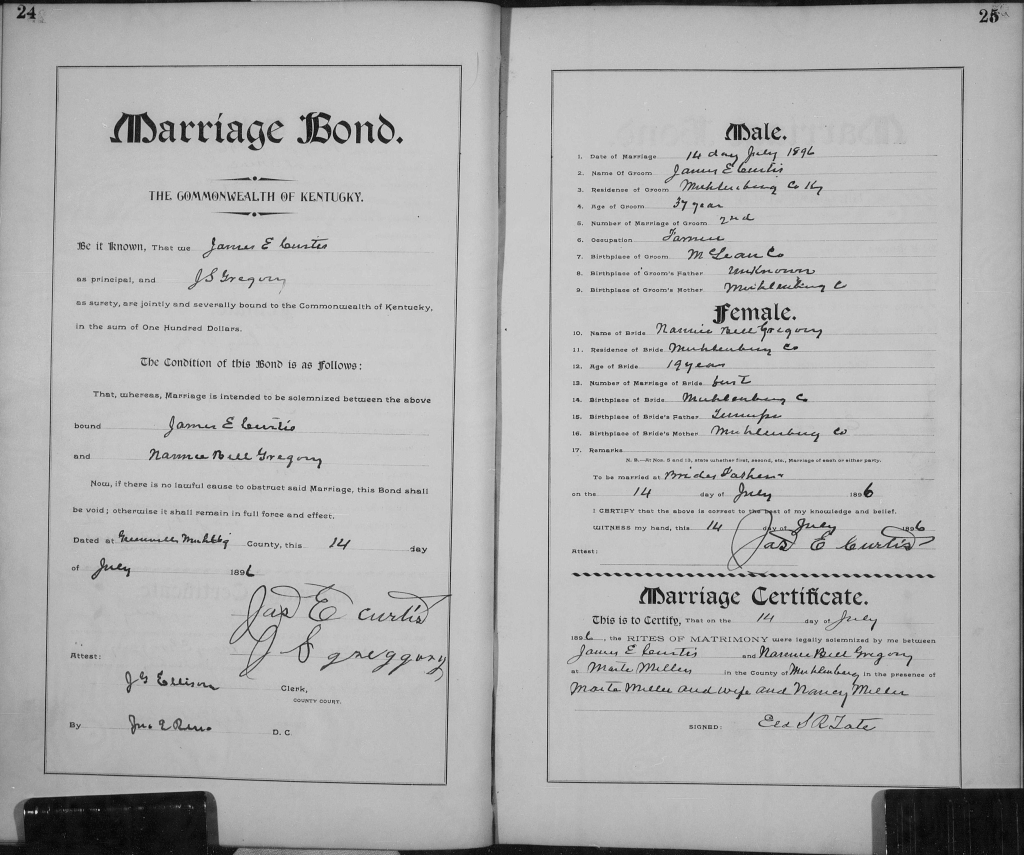 24
Marriage Bond.
THE COMMONWEALTH OF KENTUCKY.
Be it Known, That we James E Curtis
as principal, and J S Gregory
as surety, are jointly and severally bound to the Commonwealth of Kentucky,
in the sum of One Hundred Dollars.
The Condition of this Bond is as Follows:
That, whereas, Marriage is intended to be solemnized between the above
bound James E Curtis
and Nannie Bell Gregory
Now, if there is no lawful cause to obstruct said Marriage, this Bond shall
be void; otherwise it shall remain in full force and effect.
Dated at Greenville Muhlbg County, this 14 day
of July 1896
Jas E Curtis
J S greggory
Attest:
J G Ellison Clerk,
COUNTY COURT.
By Jno E Reno D. C.
25
Male.
1. Date of Marriage 14 day July 1896
2. Name Of Groom James E Curtis
3. Residence of Groom Muhlenburg Co Ky
4. Age of Groom 37 year
5. Number of Marriage of Groom 2nd
6. Occupation Farmer
7. Birthplace of Groom McLean Co
8. Birthplace of Groom's Father Unknown
9. Birthplace of Groom's Mother Muhlenburg C
Female.
10. Name of Bride Nannie Bell Gregory
11. Residence of Bride Muhlenburg Co
12. Age of Bride 19 years
13. Number of Marriage of Bride first
14. Birthplace of Bride Muhlenburg Co
15. Birthplace of Bride's Father
16. Birthplace of Bride's Mother Muhlenburg Co
17. Remarks
N. B.—At Nos. 5 and 13, state whether first, second, etc., Marriage of each or either party.
To be married at Brides Fathers
on the 14 day of July 1896
I CERTIFY that the above is correct to the best of my knowledge and belief.
WITNESS my hand, this 14 day of July 1896
Jas E Curtis
Attest:
Marriage Certificate.
This is to Certify, That on the 14 day of July
1896, the RITES OF MATRIMONY were legally solemnized by me between
James E Curtis and Nannie Bell Gregory
at Marte Millers in the County of Muhlenburg in the presence of
Marte Miller and wife and Nancy Miller
SIGNED: Eld S R Tate